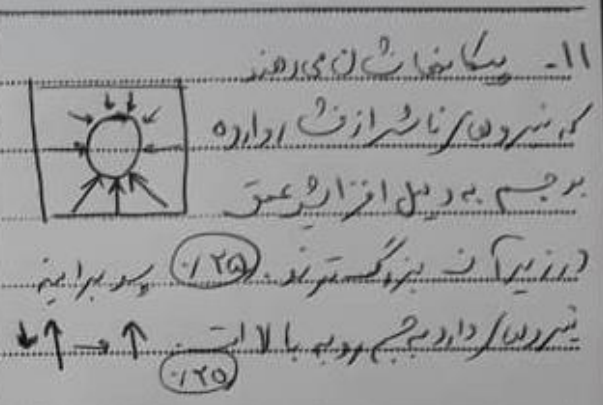 ۱۱- پیکانها نشان می‌دهند
که نیروهای ناشی از فشار وارده
بر جسم به دلیل افزایش عمق
در زیر آن بزرگترند. (۰/۲۵) پس برایند
نیروهای وارد بر جسم رو به بالا است.
(۰/۲۵)